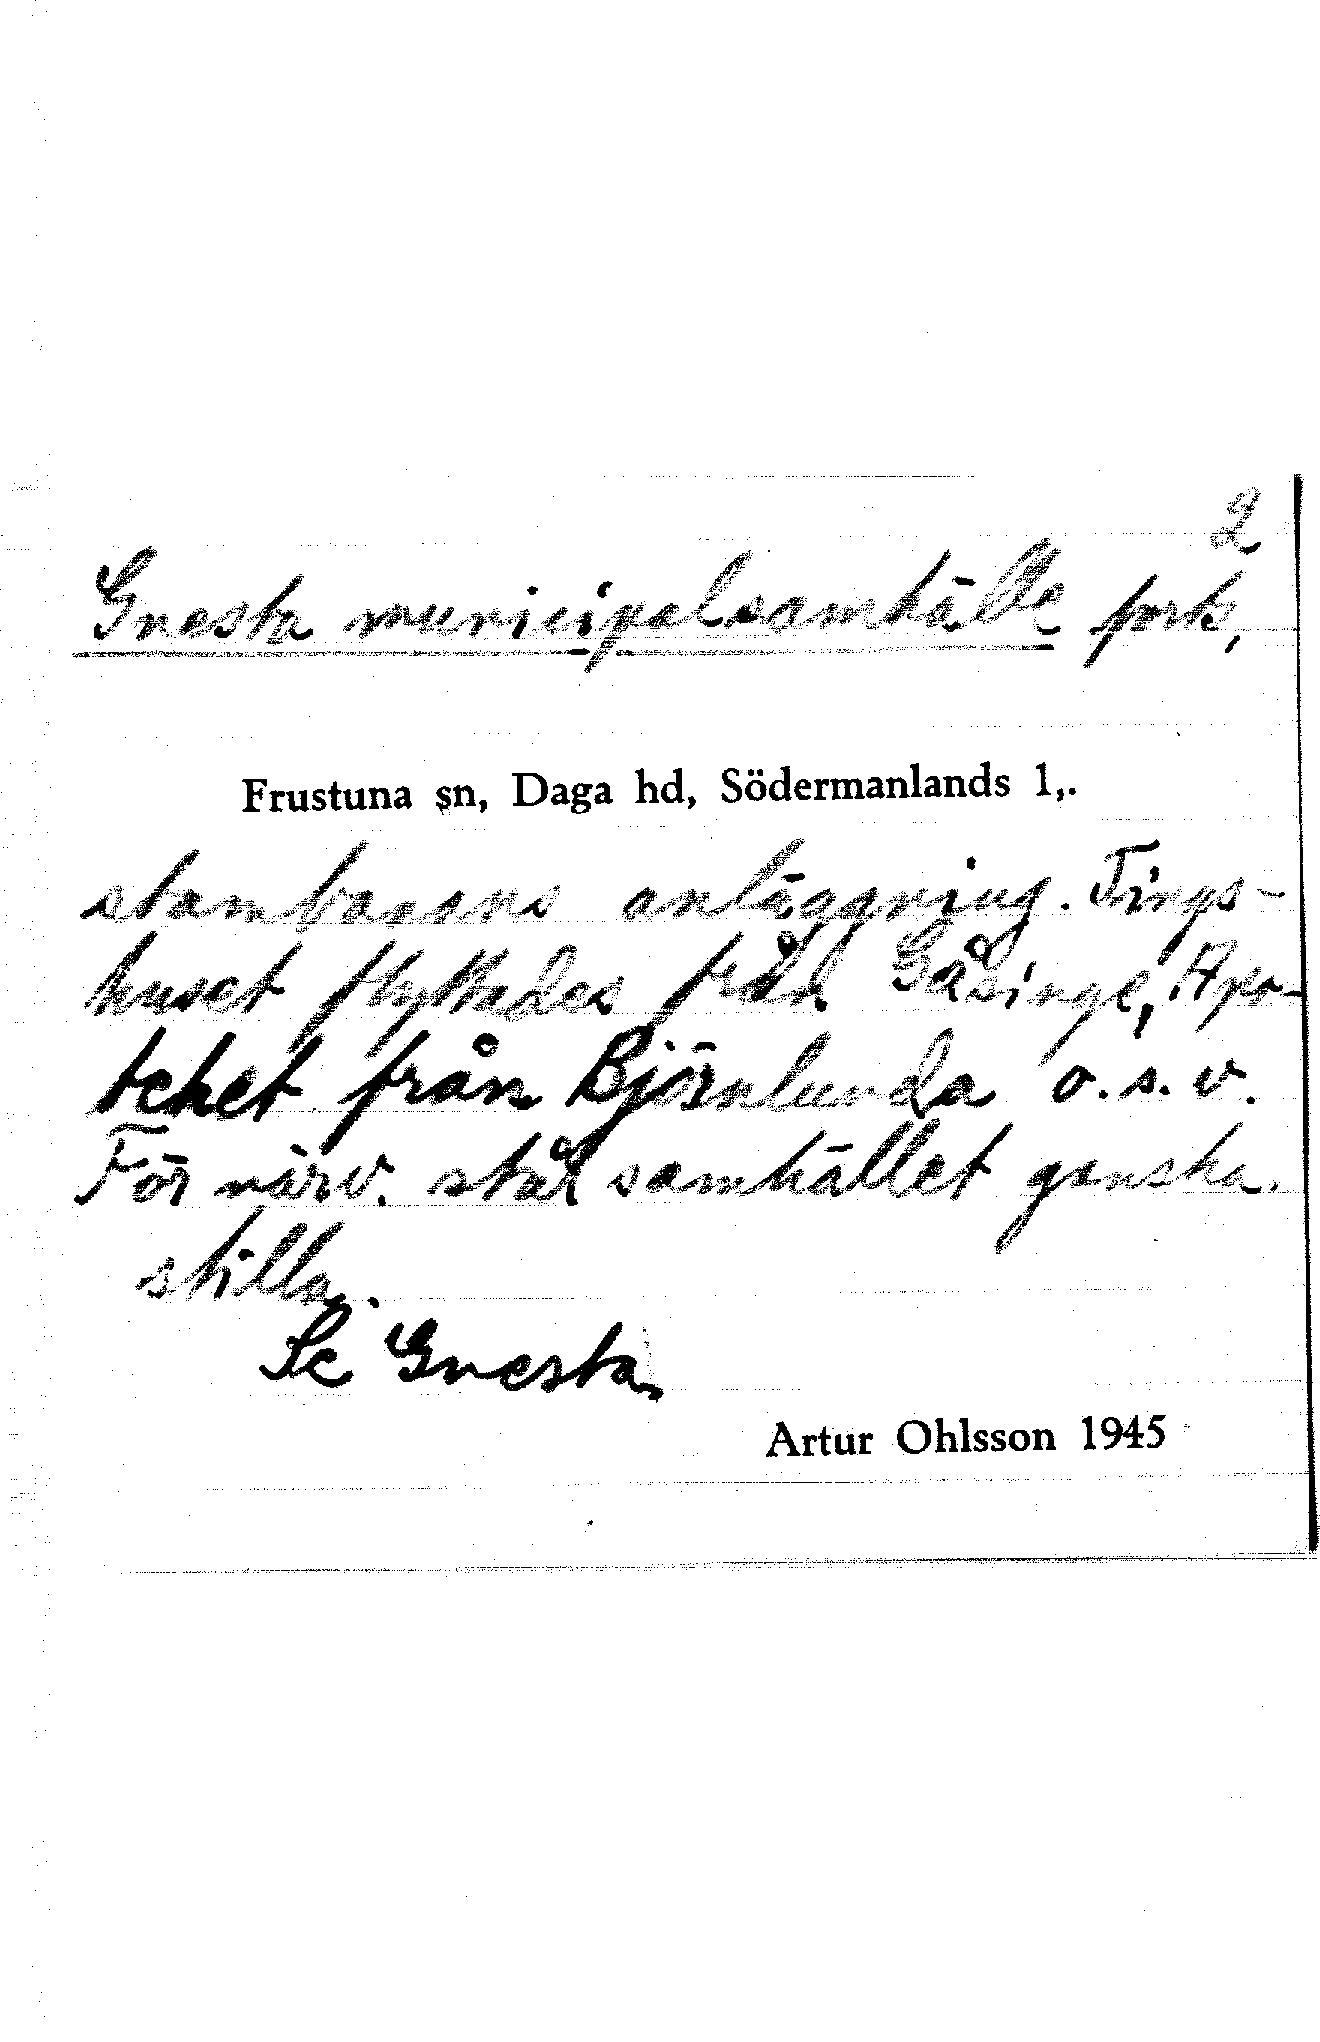 2
Gnesta municipalsamhälle forts,
Frustuna sn, Daga hd, Södermanlands l,.
stambanans anläggning. Tings-
huset flyttades från Gåsinge, Apo-
teket från Björnlunda o.s.v.
För närv. står samhället ganska
stilla.
Se Gnesta
Artur Ohlsson 1945